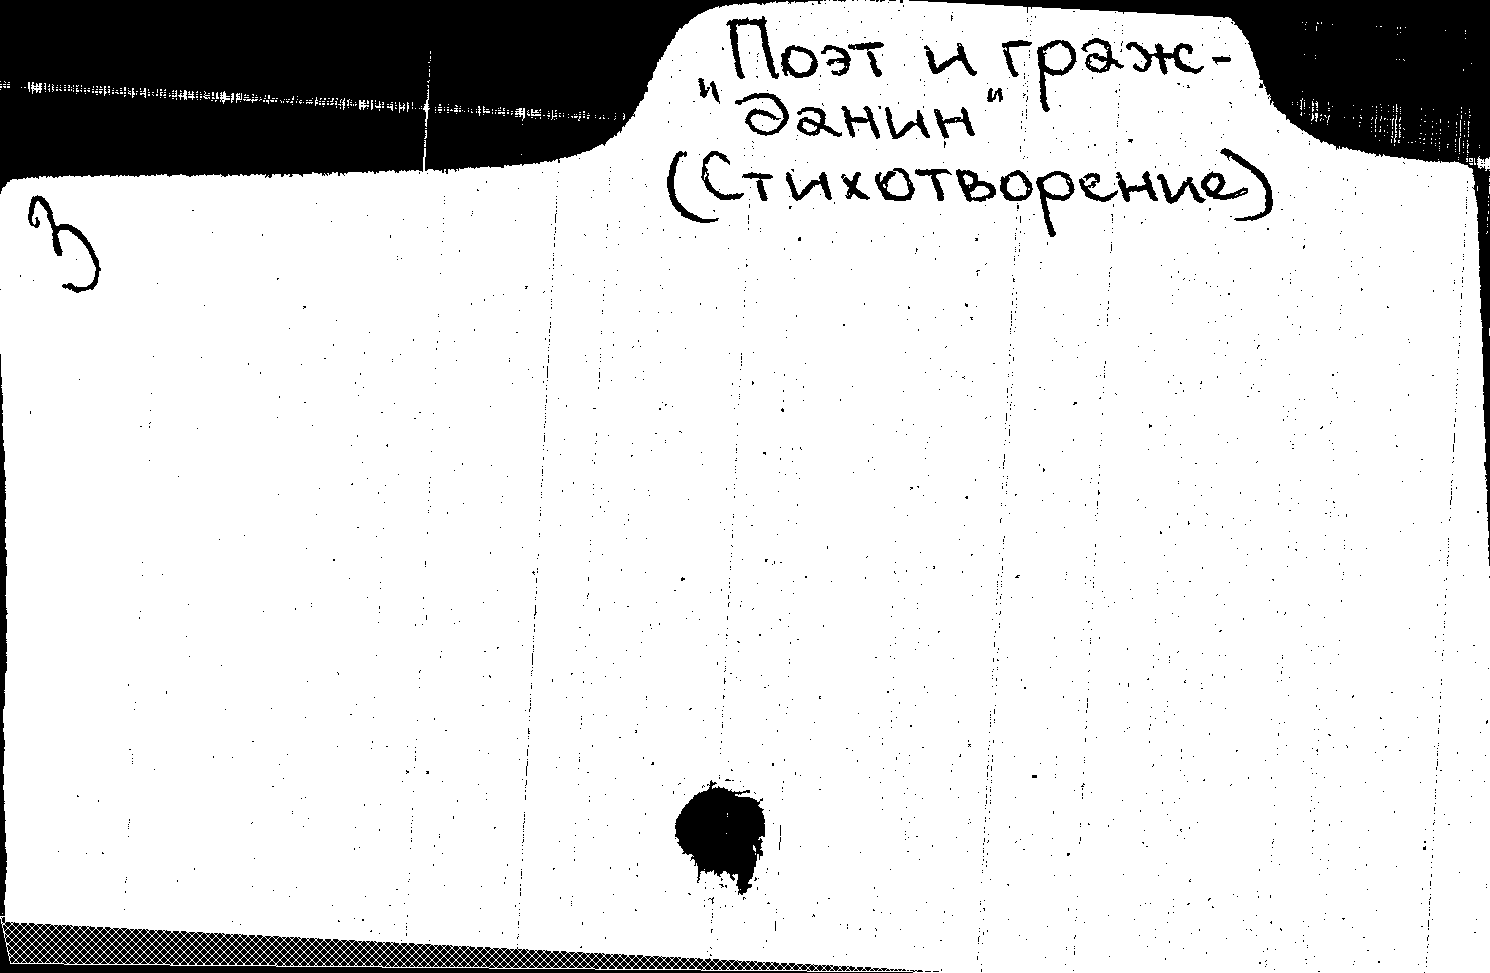 "Поэт и граж-
данин"
(Стихотворение)
З